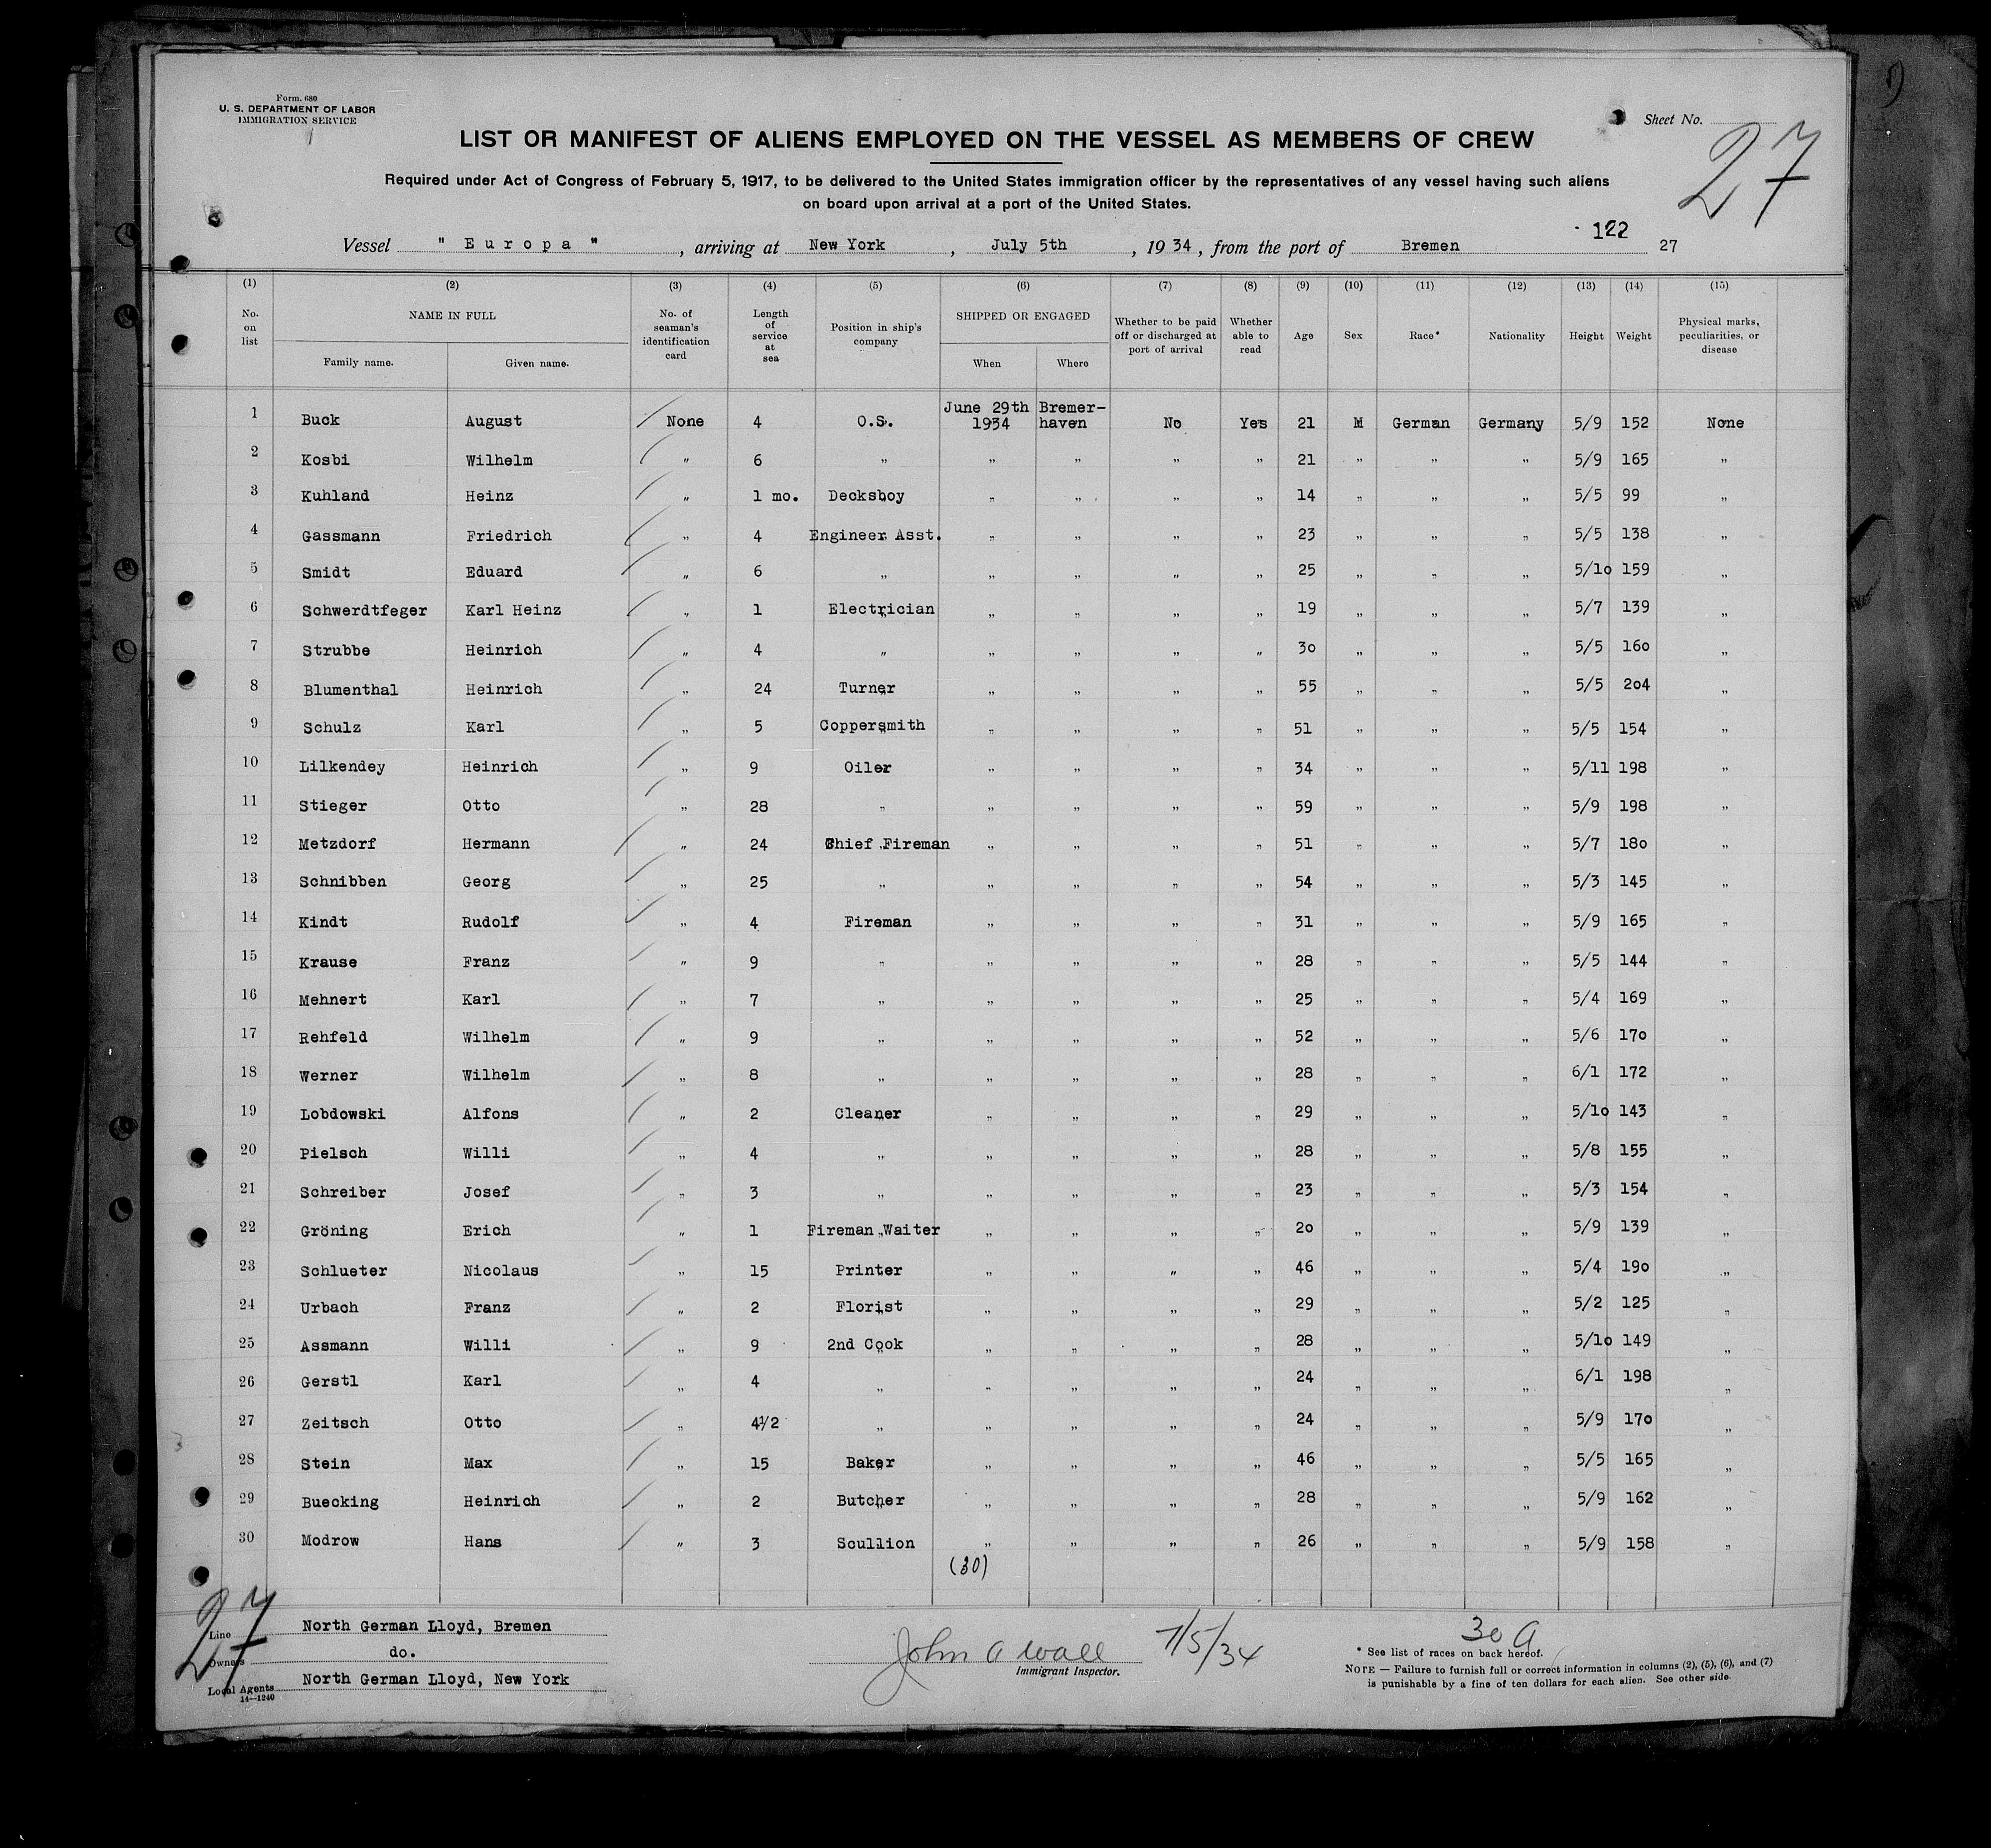 Form 680
U. S. DEPARTMENT OF LABOR
IMMIGRATION SERVICE
Sheet No.
27
LIST OR MANIFEST OF ALIENS EMPLOYED ON THE VESSEL AS MEMBERS OF CREW
Required under Act of Congress of February 5, 1917, to be delivered to the United States immigration officer by the representatives of any vessel having such aliens
on board upon arrival at a port of the United States.
122
Vessel " Europa " , arriving at New York , July 5th , 1934 , from the port of Bremen 27
(1) (2) (3) (4) (5) (6) (7) (8) (9) (10) (11) (12) (13) (14) (15)
No. on list NAME IN FULL Family name. Given name. No. of seaman's identification card Length of service at sea Position in ship's company SHIPPED OR ENGAGED When Where Whether to be paid off or discharged at port of arrival Whether able to read Age Sex Race* Nationality Height Weight Physical marks, peculiarities, or disease
1 Buck August None 4 O.S. June 29th 1934 Bremer-haven No Yes 21 M German Germany 5/9 152 None
2 Kosbi Wilhelm " 6 " " " " " 21 " " " 5/9 165 "
3 Kuhland Heinz " 1 mo. Decksboy " " " " 14 " " " 5/5 99 "
4 Gassmann Friedrich " 4 Engineer Asst. " " " " 23 " " " 5/5 138 "
5 Smidt Eduard " 6 " " " " " 25 " " " 5/10 159 "
6 Schwerdtfeger Karl Heinz " 1 Electrician " " " " 19 " " " 5/7 139 "
7 Strubbe Heinrich " 4 " " " " " 30 " " " 5/5 160 "
8 Blumenthal Heinrich " 24 Turner " " " " 55 " " " 5/5 204 "
9 Schulz Karl " 5 Coppersmith " " " " 51 " " " 5/5 154 "
10 Lilkendey Heinrich " 9 Oiler " " " " 34 " " " 5/11 198 "
11 Stieger Otto " 28 " " " " " 59 " " " 5/9 198 "
12 Metzdorf Hermann " 24 Chief Fireman " " " " 51 " " " 5/7 180 "
13 Schnibben Georg " 25 " " " " " 54 " " " 5/3 145 "
14 Kindt Rudolf " 4 Fireman " " " " 31 " " " 5/9 165 "
15 Krause Franz " 9 " " " " " 28 " " " 5/5 144 "
16 Mehnert Karl " 7 " " " " " 25 " " " 5/4 169 "
17 Rehfeld Wilhelm " 9 " " " " " 52 " " " 5/6 170 "
18 Werner Wilhelm " 8 " " " " " 28 " " " 6/1 172 "
19 Lobdowski Alfons " 2 Cleaner " " " " 29 " " " 5/10 143 "
20 Pielsch Willi " 4 " " " " " 28 " " " 5/8 155 "
21 Schreiber Josef " 3 " " " " " 23 " " " 5/3 154 "
22 Gröning Erich " 1 Fireman Waiter " " " " 20 " " " 5/9 139 "
23 Schlueter Nicolaus " 15 Printer " " " " 46 " " " 5/4 190 "
24 Urbach Franz " 2 Florist " " " " 29 " " " 5/2 125 "
25 Assmann Willi " 9 2nd Cook " " " " 28 " " " 5/10 149 "
26 Gerstl Karl " 4 " " " " " 24 " " " 6/1 198 "
27 Zeitsch Otto " 4½ " " " " " 24 " " " 5/9 170 "
28 Stein Max " 15 Baker " " " " 46 " " " 5/5 165 "
29 Buecking Heinrich " 2 Butcher " " " " 28 " " " 5/9 162 "
30 Modrow Hans " 3 Scullion " " " " 26 " " " 5/9 158 "
(30)
27
Line North German Lloyd, Bremen
Owners do.
Local Agents North German Lloyd, New York
14-1240
John A Wall 7/5/34
Immigrant Inspector.
30 A
* See list of races on back hereof.
NOTE — Failure to furnish full or correct information in columns (2), (5), (6), and (7)
is punishable by a fine of ten dollars for each alien. See other side.